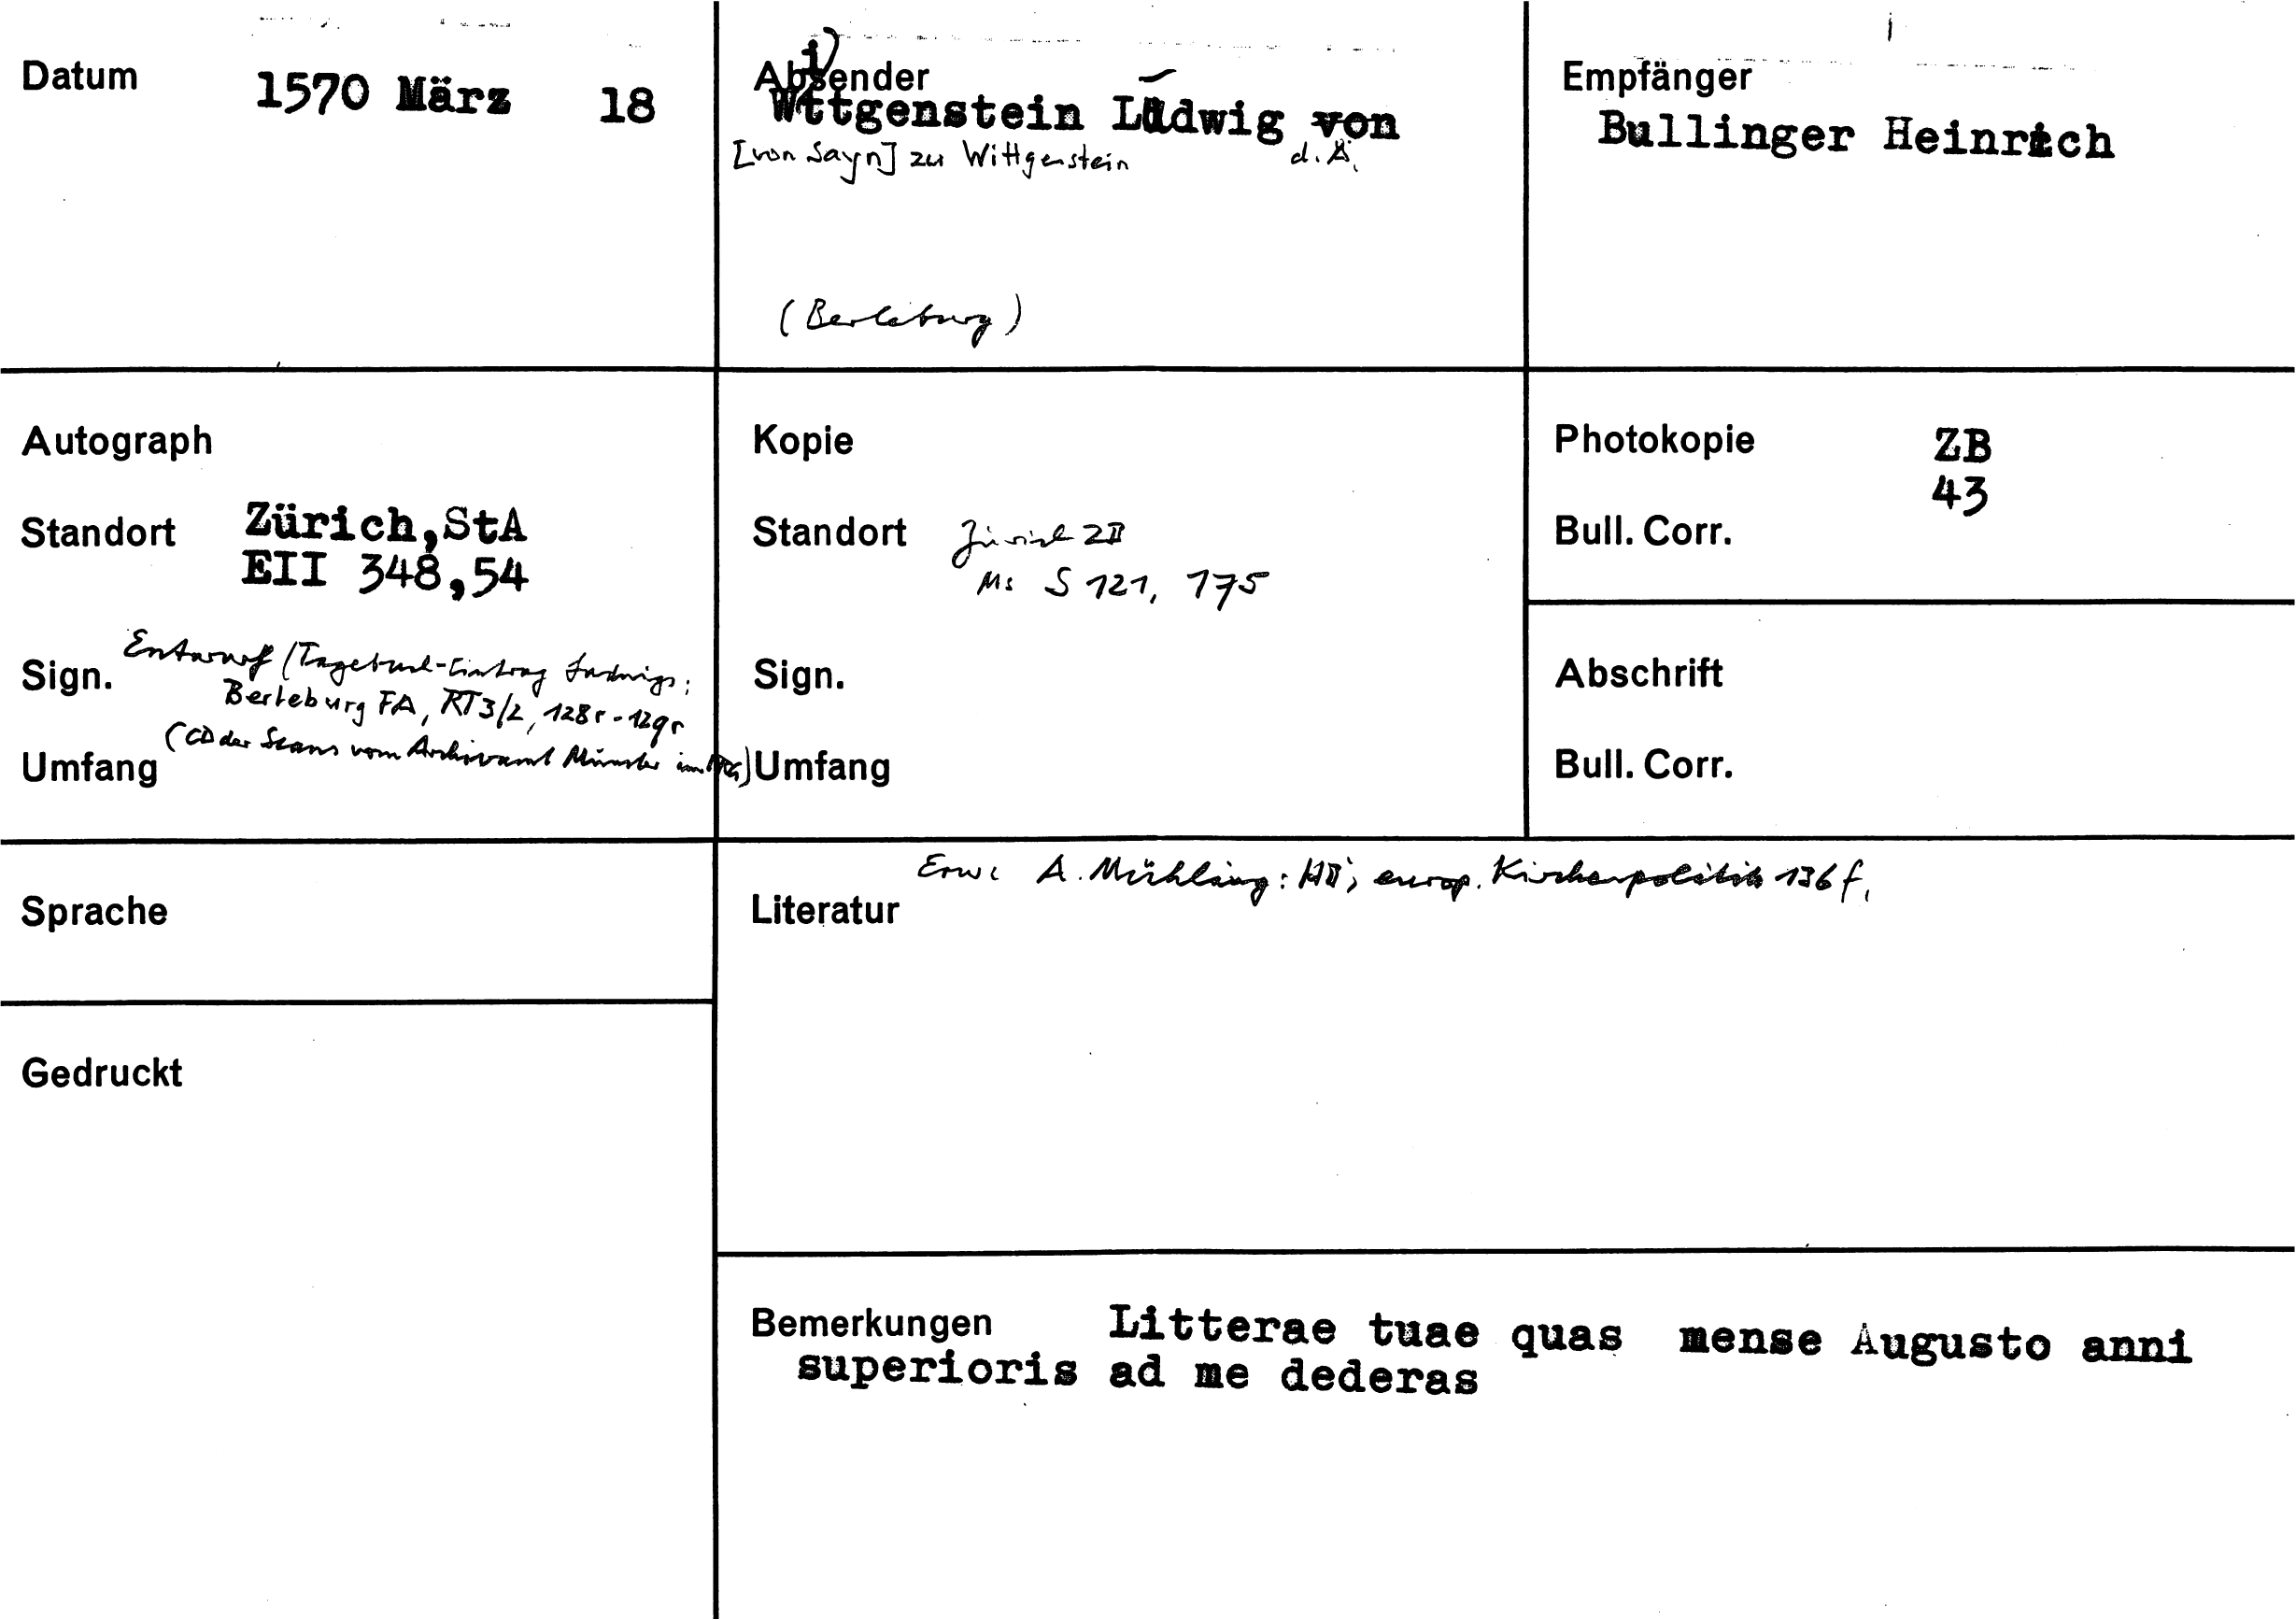 Datum 1570 März 18
Absender
i)
Wttgenstein Ludwig von
[von Sayn] zu Wittgenstein d. Ä.
(Berleburg)
Empfänger
Bullinger Heinrich
Autograph
Standort Zürich,StA
EII 348,54
Sign. Entwurf (Tagebuch-Eintrag Ludwigs:
Berleburg FA, RT3/2, 128r-129r
Umfang (CD der Scans vom Archivamt Münster im
Kopie
Standort Zürich ZB
Ms S 121, 175
Sign.
Umfang
Photokopie ZB
43
Bull. Corr.
Abschrift
Bull. Corr.
Sprache
Literatur Erw: A. Mühling: HB's europ. Kirchenpolitik 136 f.
Gedruckt
Bemerkungen Litterae tuae quas mense Augusto anni
superioris ad me dederas